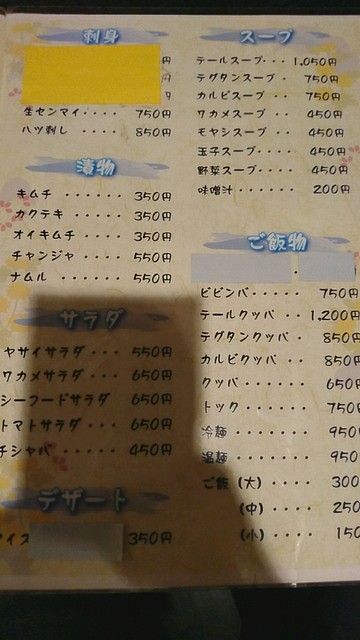 刺身
円
円
生センマイ・・・・ 750円
ハツ刺し・・・・ 850円
漬物
キムチ ・・・・・・ 350円
カクテキ ・・・・・ 350円
オイキムチ ・・・・ 350円
チャンジャ ・・・・ 550円
ナムル ・・・・・・ 550円
サラダ
ヤサイサラダ・・・ 550円
ワカメサラダ・・・ 650円
シーフードサラダ 650円
トマトサラダ・・・ 650円
チシャバ ・・・・・ 450円
デザート
イス
350円
スープ
テールスープ・・・ 1,050円
テグタンスープ ・・ 750円
カルビスープ ・・・ 750円
ワカメスープ ・・・ 450円
モヤシスープ ・・・ 450円
玉子スープ・・・・ 450円
野菜スープ・・・・ 450円
味噌汁・・・・・・ 200円
ご飯物
ビビンバ・・・・・ 750円
テールクッパ ・・ 1,200円
テグタンクッパ ・・ 850円
カルビクッパ ・・・ 850円
クッパ ・・・・・・ 650円
トック ・・・・・・ 750円
冷麺 ・・・・・・ 950円
温麺 ・・・・・・ 950
ご飯 (大) ・・・・ 300
(中) ・・・・ 250
(小) ・・・・ 150